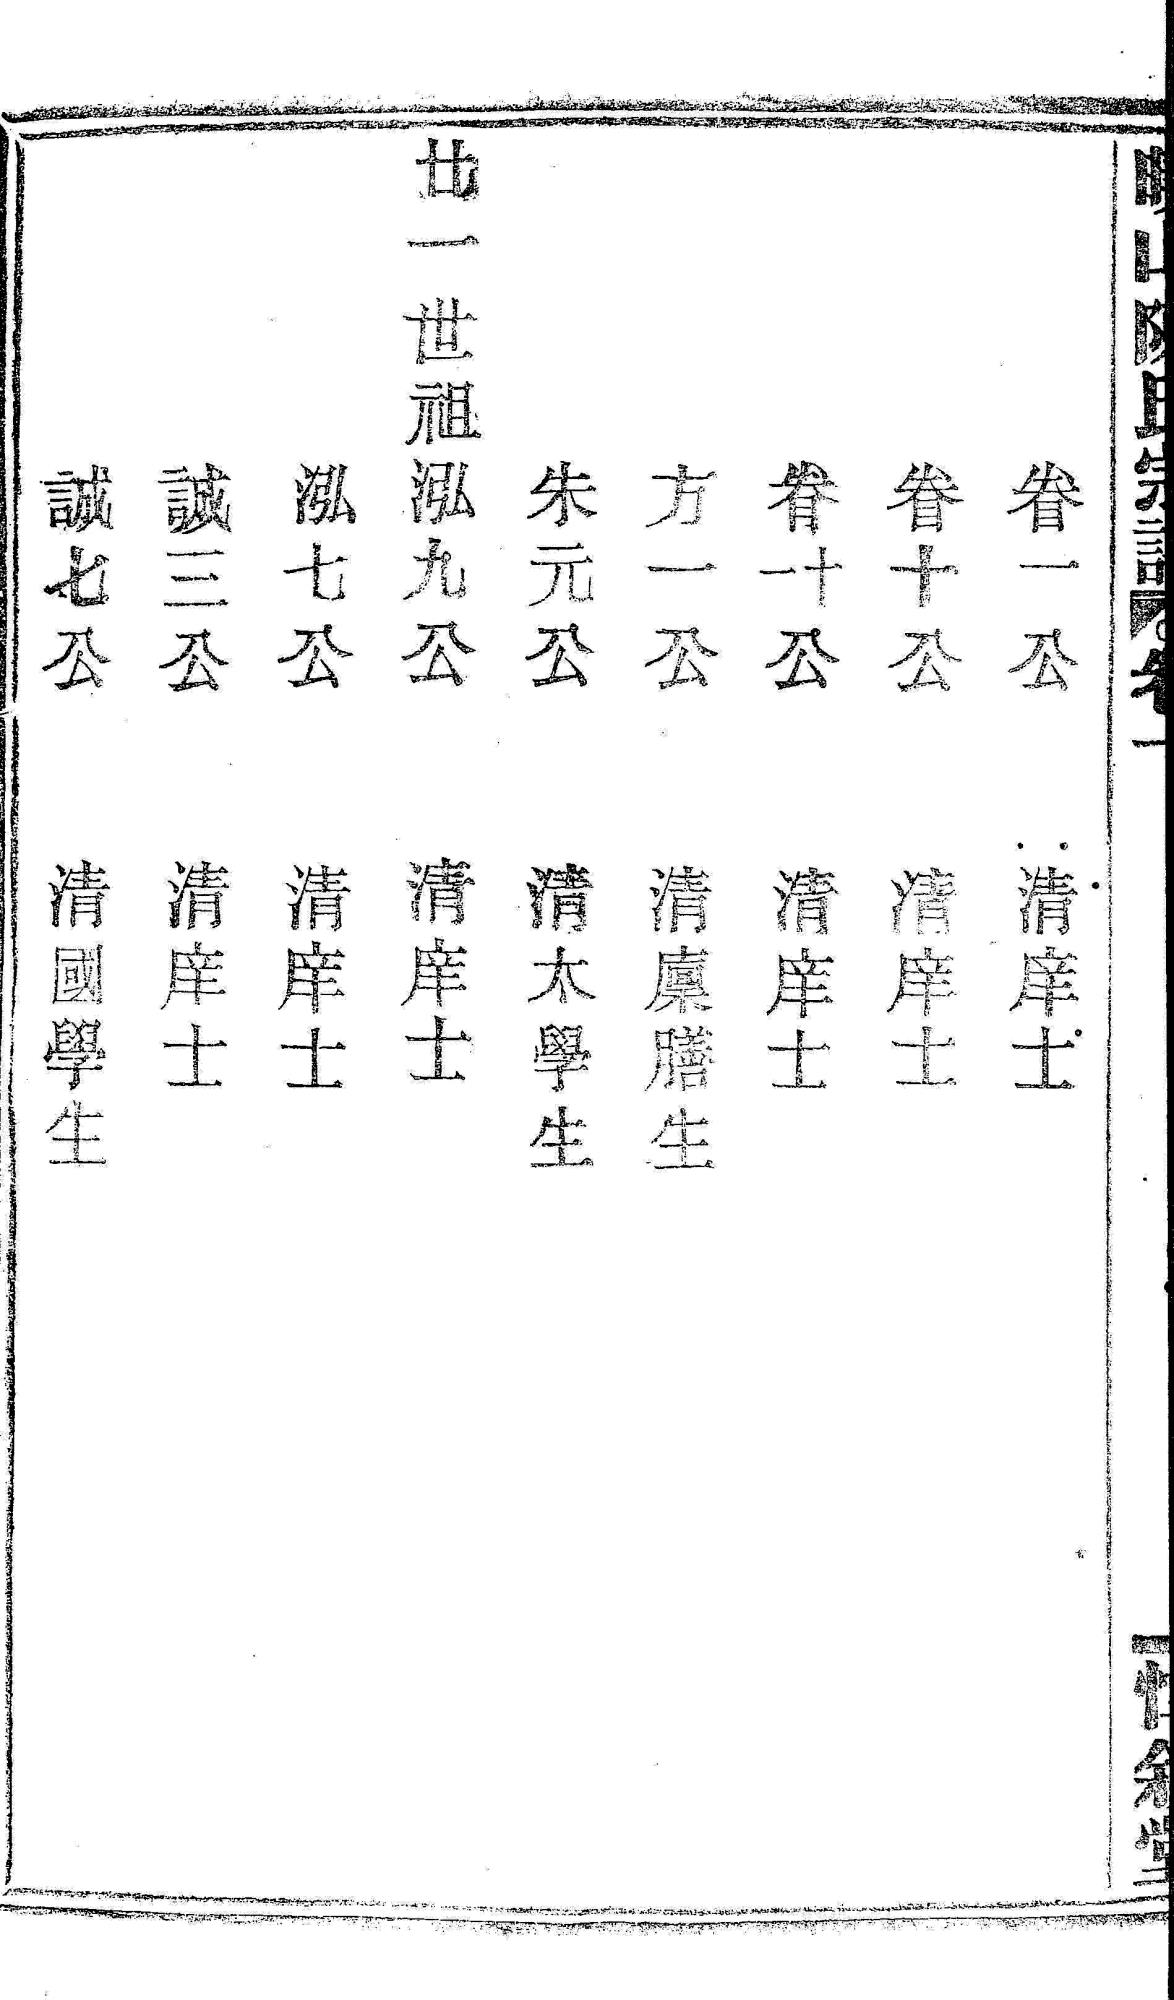 山陳氏宗譜 卷一 惇敘堂
眷一公 清庠士
眷十公 清庠士
眷十一公 清庠士
方一公 清廩膳生
朱元公 清太學生
廿一世祖泓九公 清庠士
泓七公 清庠士
誠三公 清庠士
誠七公 清國學生